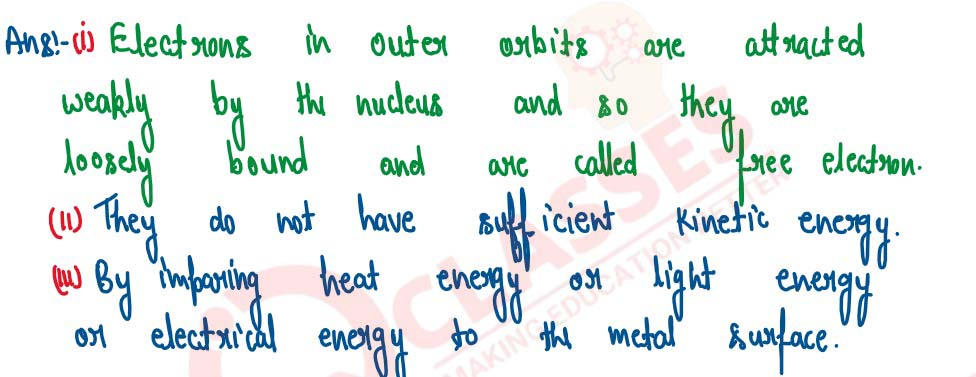 Ans:- (i) Electrons in outer orbits are attracted
weakly by the nucleus and so they are
loosely bound and are called free electron.
(ii) They do not have sufficient kinetic energy.
(iii) By imparing heat energy or light energy
or electrical energy to the metal surface.
CLASSES
MAKING EDUCATION